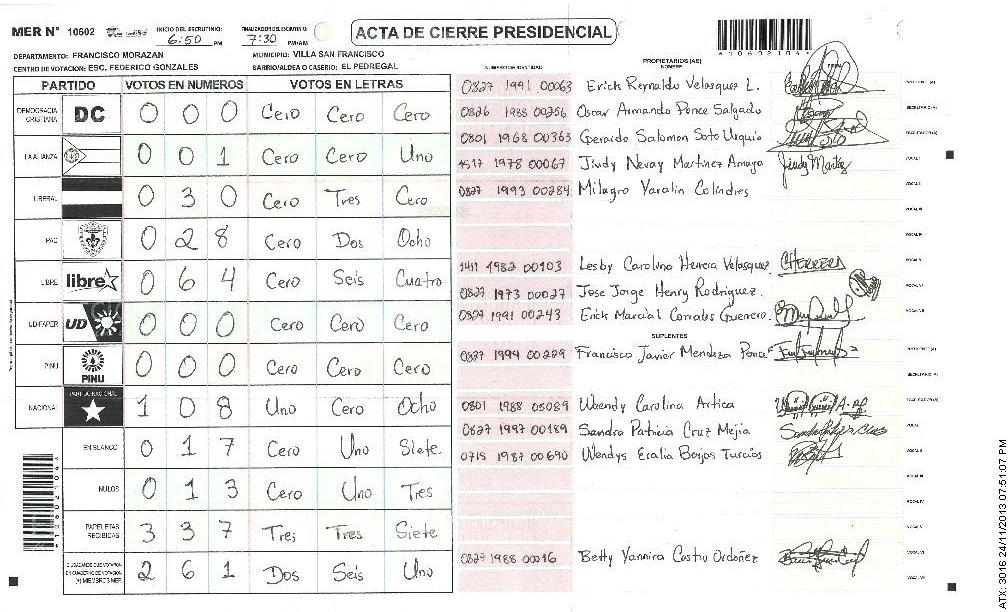 MER Nº 10602 INICIO DEL ESCRUTINIO: 6:50 PM FINALIZACION DEL ESCRUTINIO: 7:30 PM/AM
ACTA DE CIERRE PRESIDENCIAL
*10602104*
DEPARTAMENTO: FRANCISCO MORAZAN MUNICIPIO: VILLA SAN FRANCISCO
CENTRO DE VOTACION: ESC. FEDERICO GONZALES BARRIO/ALDEA O CASERIO: EL PEDREGAL
PARTIDO VOTOS EN NUMEROS VOTOS EN LETRAS
DEMOCRACIA CRISTIANA DC 0 0 0 Cero Cero Cero
LA ALIANZA 0 0 1 Cero Cero Uno
LIBERAL 0 3 0 Cero Tres Cero
PAC 0 2 8 Cero Dos Ocho
LIBRE libre 0 6 4 Cero Seis Cuatro
UD-FAPER UD 0 0 0 Cero Cero Cero
PINU PINU 0 0 0 Cero Cero Cero
NACIONAL PARTIDO NACIONAL 1 0 8 Uno Cero Ocho
EN BLANCO 0 1 7 Cero Uno Siete
NULOS 0 1 3 Cero Uno Tres
PAPELETAS RECIBIDAS 3 3 7 Tres Tres Siete
CIUDADANOS QUE VOTARON EN CUADERNO DE VOTACION (+) MIEMBROS MER 2 6 1 Dos Seis Uno
NUMERO DE IDENTIDAD PROPIETARIOS (AS) NOMBRE FIRMA
0827 1991 00063 Erick Reynaldo Velasquez L. PRESIDENTE (A)
0826 1988 00256 Oscar Armando Ponce Salgado SECRETARIO (A)
0801 1968 00363 Gerardo Salomon Soto Urquia ESCRUTADOR (A)
1517 1978 00067 Jindy Neray Martinez Amaya Jindy Martinez VOCAL I
0827 1993 00284 Milagro Yaralin Colindres VOCAL II
VOCAL III
VOCAL IV
1411 1982 00103 Lesby Carolina Herrera Velasquez CHERRERA VOCAL V
0827 1973 00027 Jose Jorge Henry Rodriguez. VOCAL VI
0827 1991 00243 Erick Marcial Corrales Guerrero. VOCAL VII
SUPLENTES
0827 1994 00229 Francisco Javier Mendoza Ponce PRESIDENTE (A)
SECRETARIO (A)
0801 1988 05089 Wendy Carolina Artica ESCRUTADOR (A)
0827 1997 00189 Sandra Patricia Cruz Mejia VOCAL I
0715 1987 00690 Wendys Eralia Borjas Turcios VOCAL II
VOCAL III
VOCAL IV
VOCAL V
0827 1988 00016 Betty Yannira Castro Ordoñez VOCAL VI
VOCAL VII
ATX: 3016 24/11/2013 07:51:07 PM